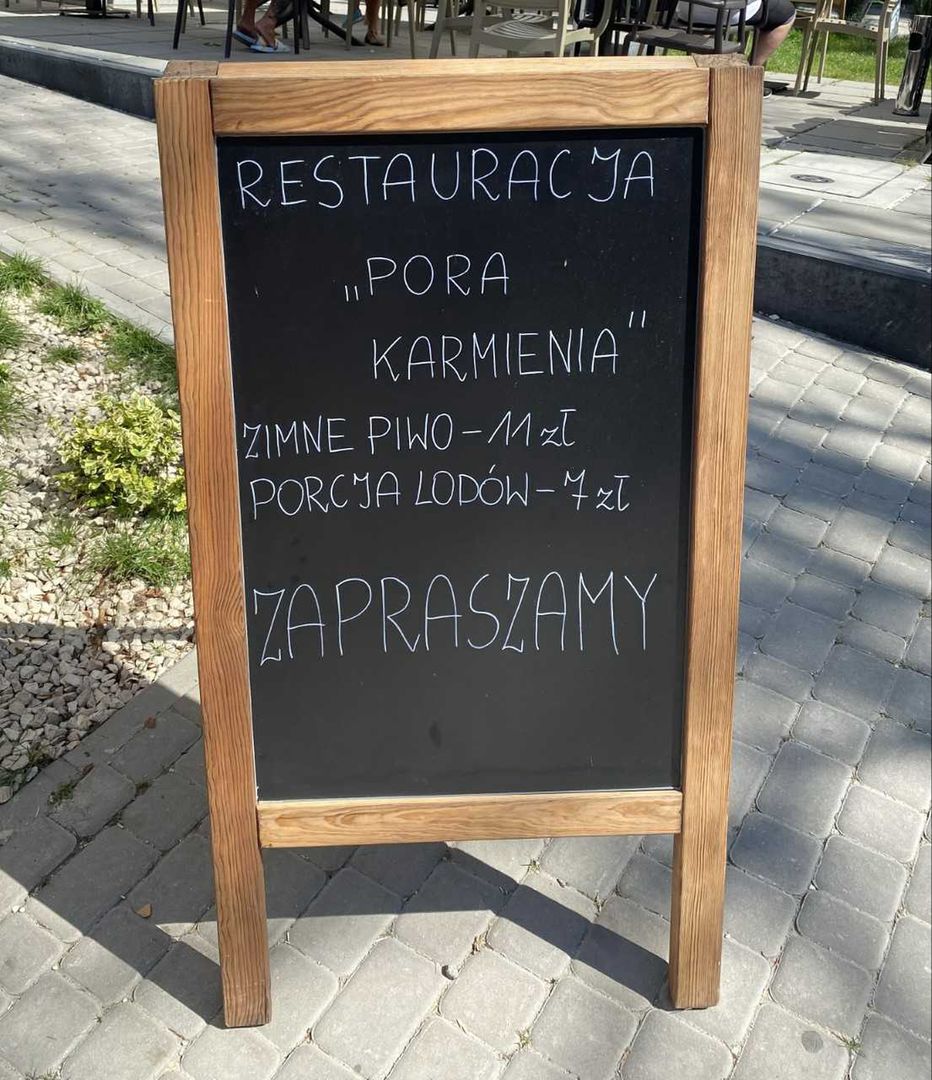 RESTAURACJA
„PORA
KARMIENIA"
ZIMNE PIWO – 11 zł
PORCJA LODÓW – 7 zł
ZAPRASZAMY